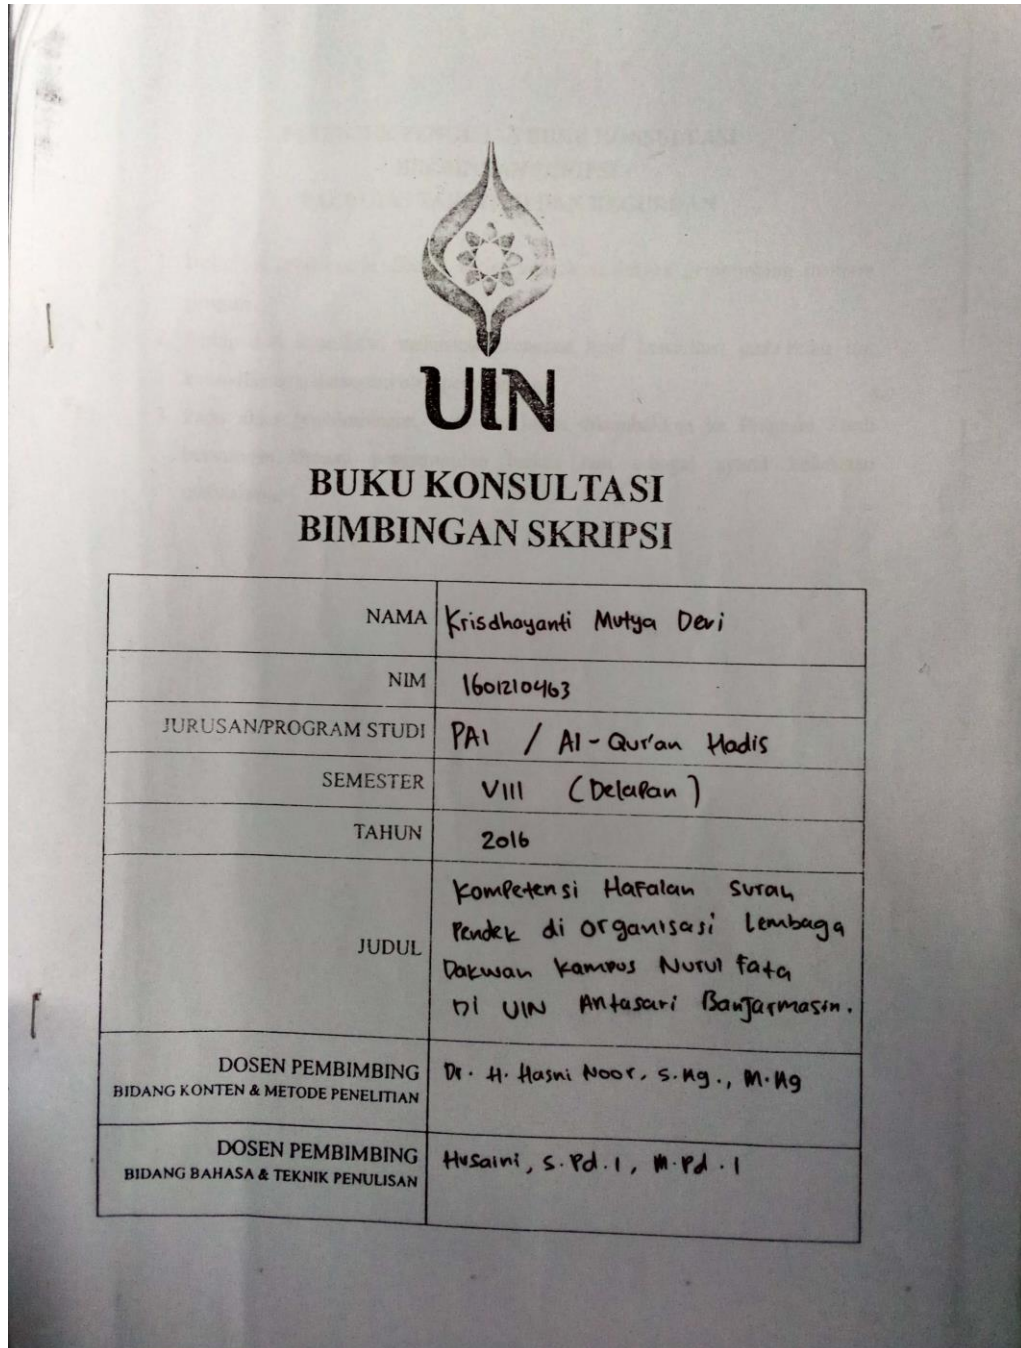 UIN
BUKU KONSULTASI
BIMBINGAN SKRIPSI
NAMA Krisdhayanti Mutya Devi
NIM 1601210463
JURUSAN/PROGRAM STUDI PAI / Al-Qur'an Hadis
SEMESTER VIII (Delapan)
TAHUN 2016
JUDUL Kompetensi Hafalan Surah
Pendek di Organisasi Lembaga
Dakwah Kampus Nurul Fata
Di UIN Antasari Banjarmasin.
DOSEN PEMBIMBING
BIDANG KONTEN & METODE PENELITIAN
Dr. H. Hasni Noor, S.Ag., M.Ag
DOSEN PEMBIMBING
BIDANG BAHASA & TEKNIK PENULISAN
Husaini, S.Pd.I, M.Pd.I